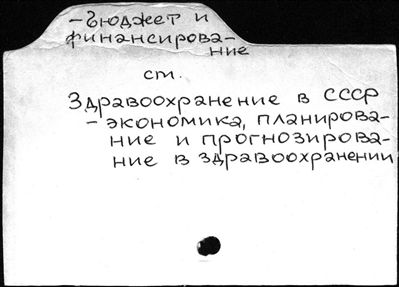 – Бюджет и
финансирова-
ние
см.
Здравоохранение в СССР
– экономика, планирова-
ние и прогнозирова-
ние в здравоохранении